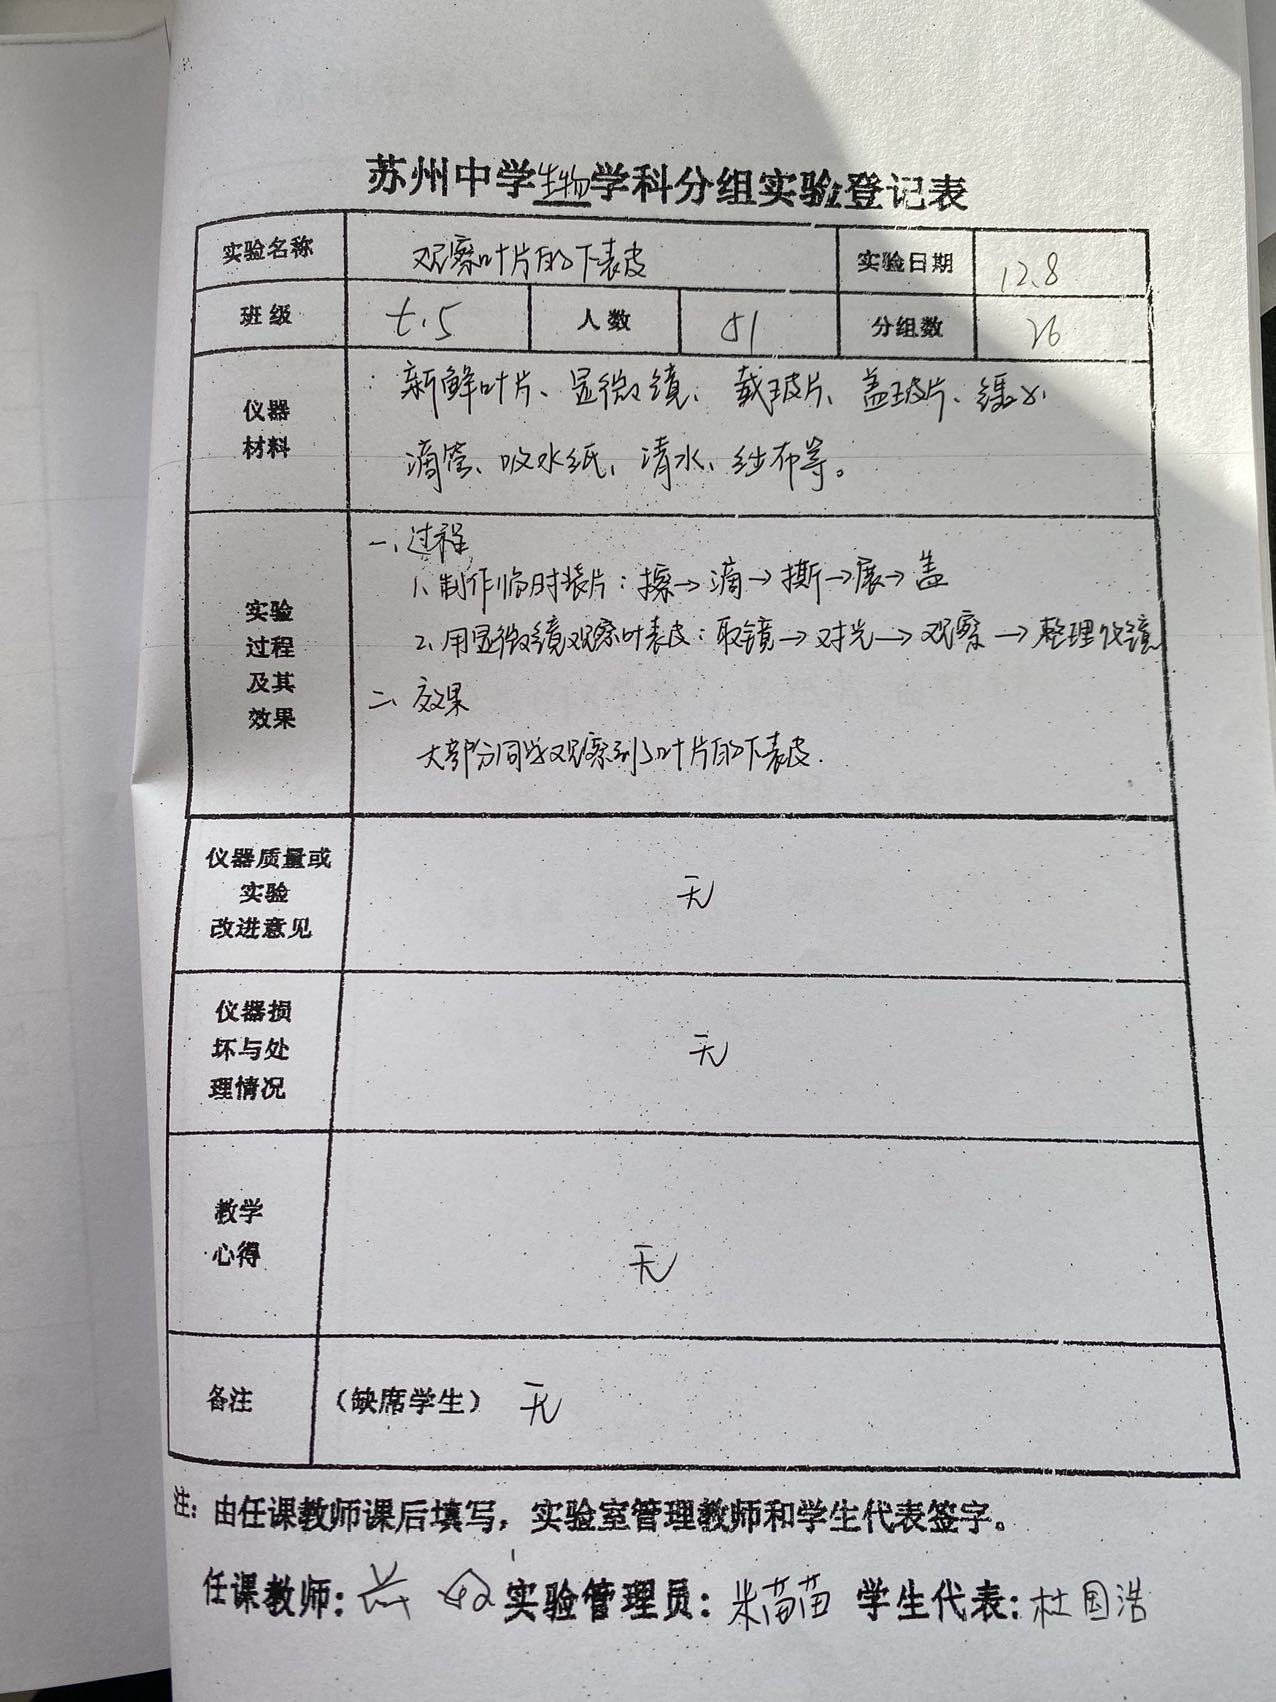 苏州中学生物学科分组实验登记表
实验名称 观察叶片的下表皮 实验日期 12.8
班级 七.5 人数 51 分组数 26
仪器
材料
新鲜叶片、显微镜、载玻片、盖玻片、镊子、
滴管、吸水纸、清水、纱布等。
实验
过程
及其
效果
一、过程
1、制作临时装片：擦→滴→撕→展→盖
2、用显微镜观察叶表皮：取镜→对光→观察→整理收镜
二、效果
大部分同学观察到了叶片的下表皮.
仪器质量或
实验
改进意见
无
仪器损
坏与处
理情况
无
教学
心得
无
备注 （缺席学生） 无
注：由任课教师课后填写，实验室管理教师和学生代表签字。
任课教师： 实验管理员：米苗苗 学生代表：杜国浩